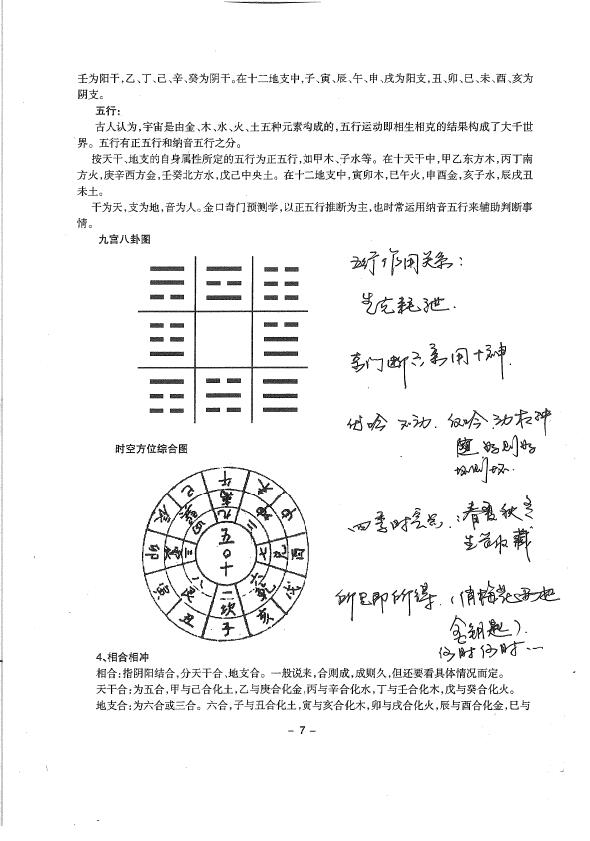 壬为阳干,乙、丁、己、辛、癸为阴干。在十二地支中,子、寅、辰、午、申、戌为阳支,丑、卯、巳、未、酉、亥为
阴支。
五行:
古人认为,宇宙是由金、木、水、火、土五种元素构成的,五行运动即相生相克的结果构成了大千世
界。五行有正五行和纳音五行之分。
按天干、地支的自身属性所定的五行为正五行,如甲木、子水等。在十天干中,甲乙东方木,丙丁南
方火,庚辛西方金,壬癸北方水,戊己中央土。在十二地支中,寅卯木,巳午火,申酉金,亥子水,辰戌丑
未土。
干为天,支为地,音为人。金口奇门预测学,以正五行推断为主,也时常运用纳音五行来辅助判断事
情。
九宫八卦图
五行作用关系:
生克耗泄.
奇门断六亲用十神
伏吟不动.反吟动
随好则好
坏则坏.
时空方位综合图
午
未
申
酉
戌
亥
子
丑
寅
卯
辰
巳
九
二
七
六
一
八
三
四
坎
五
十
四季时令:春夏秋冬
生 收藏
所见即所得.
金钥匙).
何时何时
4、相合相冲
相合:指阴阳结合,分天干合、地支合。一般说来,合则成,成则久,但还要看具体情况而定。
天干合:为五合,甲与己合化土,乙与庚合化金,丙与辛合化水,丁与壬合化木,戊与癸合化火。
地支合:为六合或三合。六合,子与丑合化土,寅与亥合化木,卯与戌合化火,辰与酉合化金,巳与
- 7 -